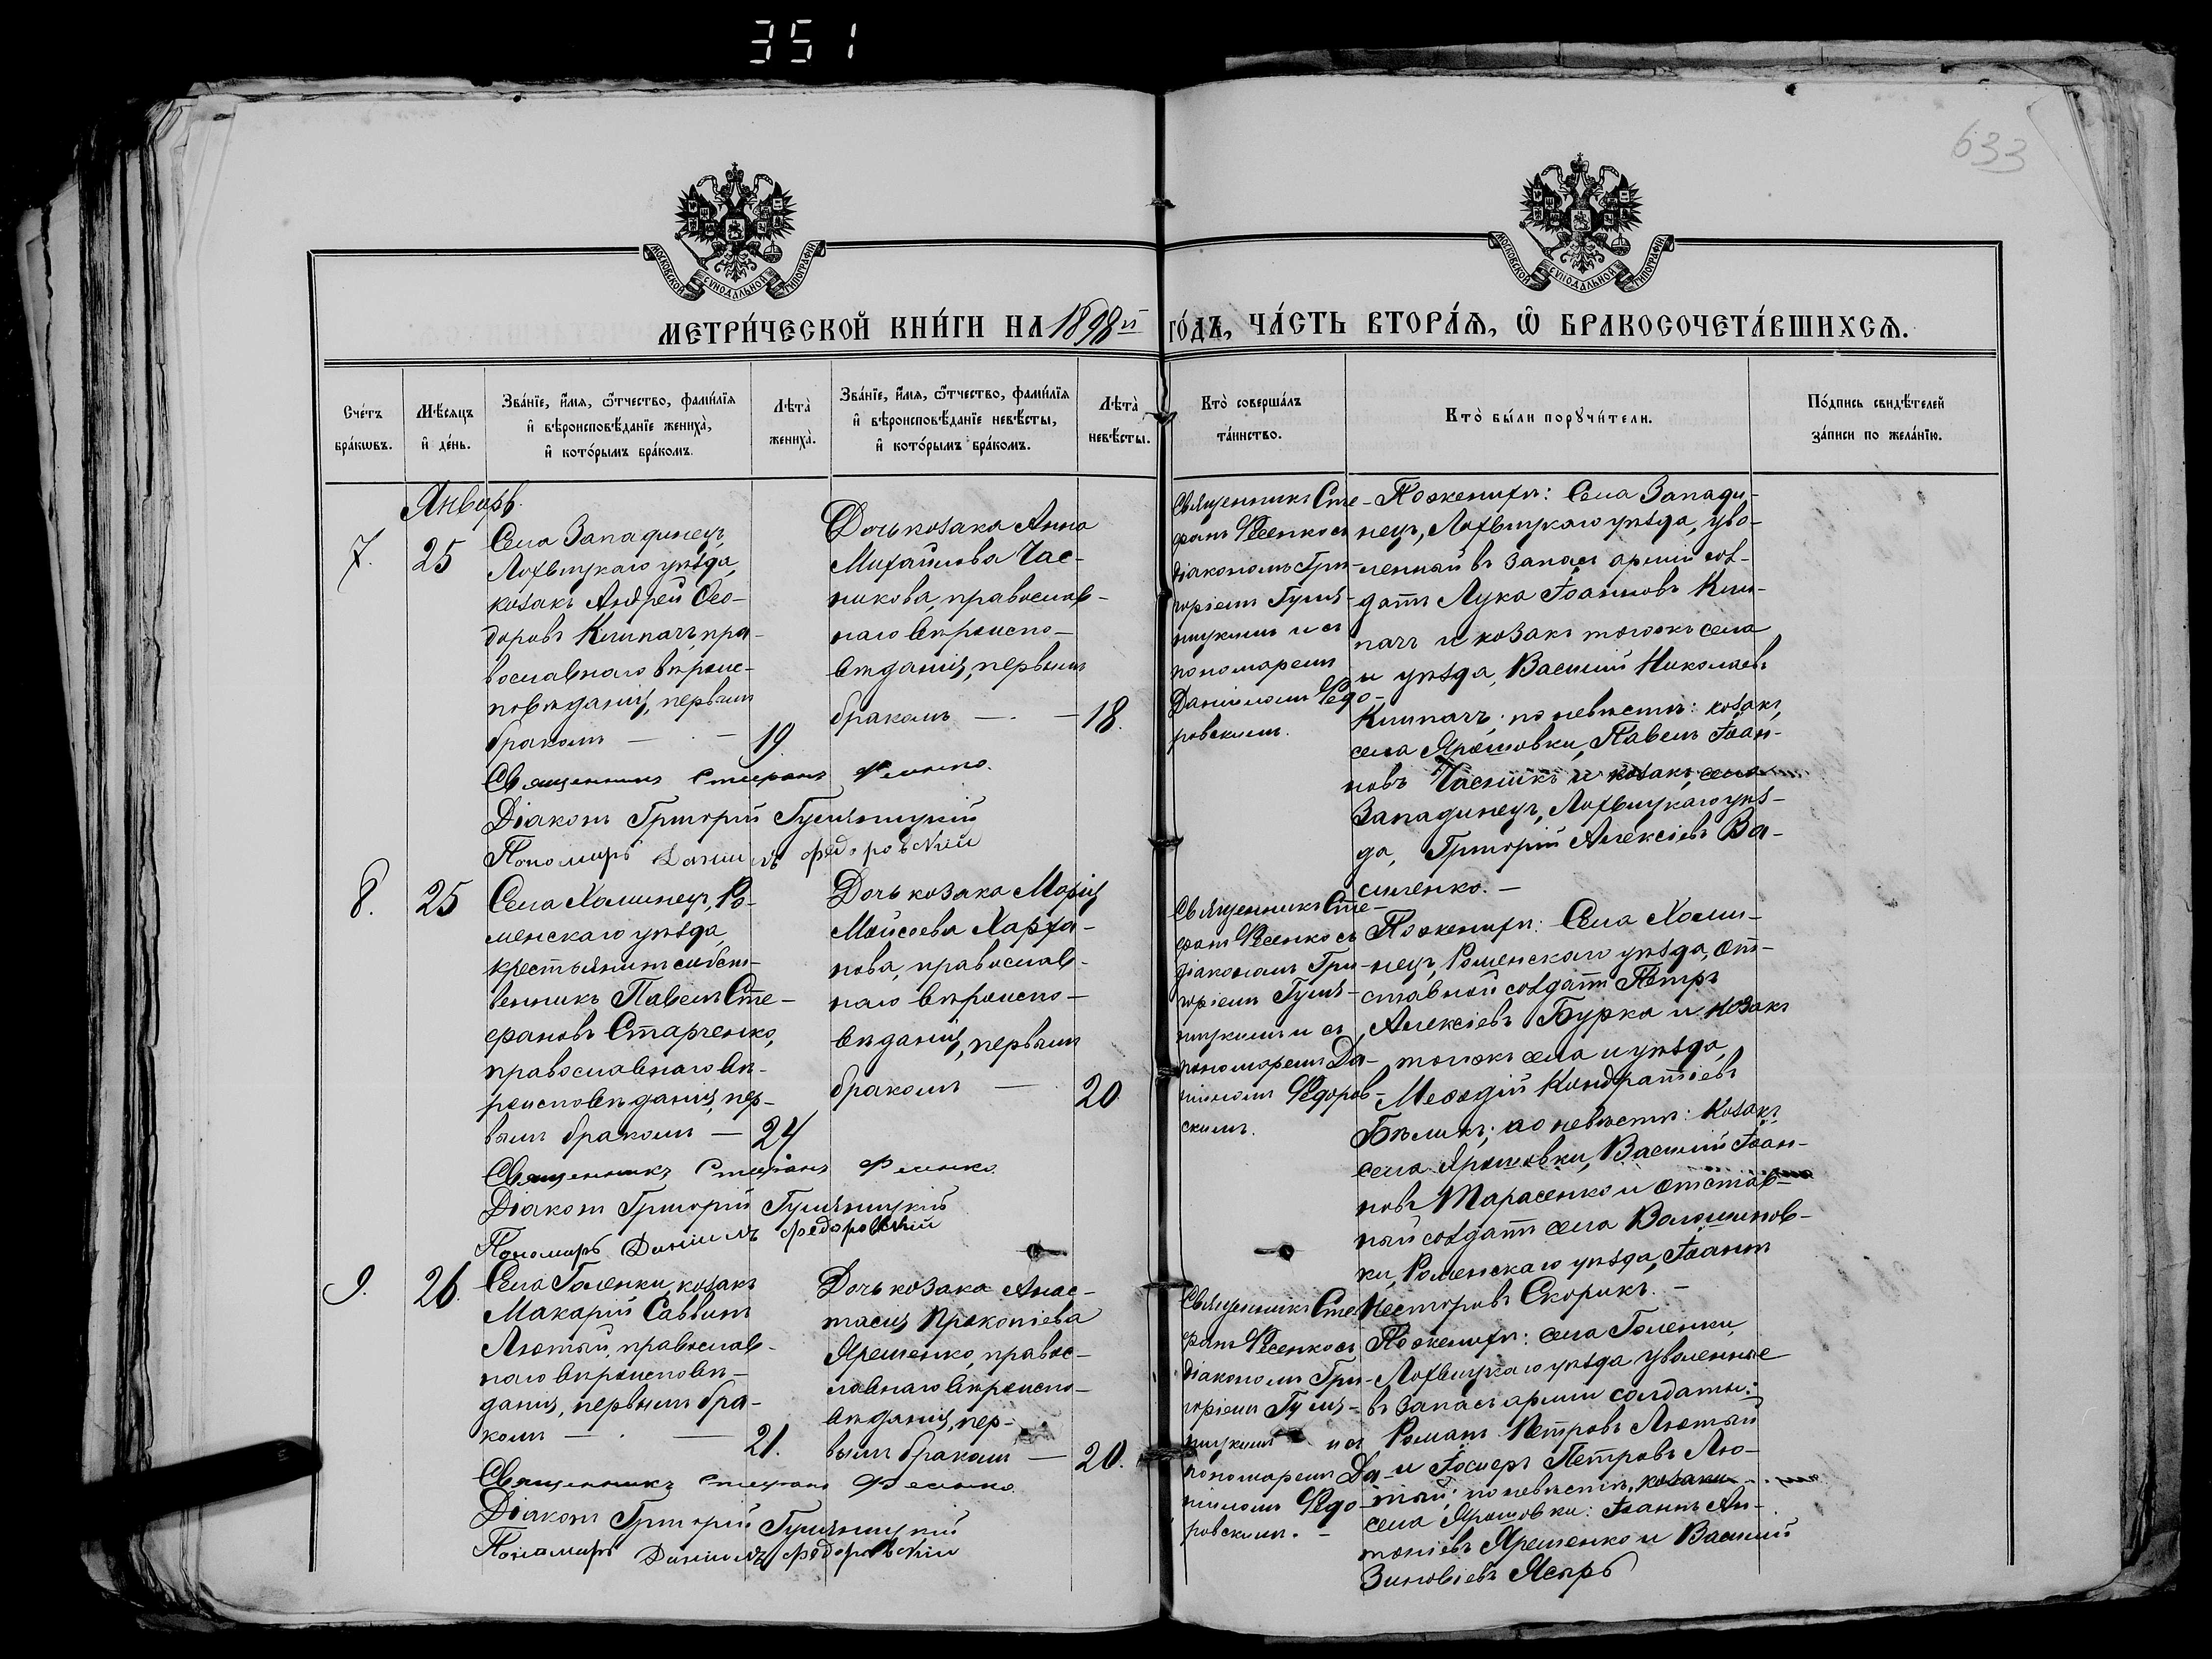 351
633
МОСКОВСКОЙ СѴНОДАЛЬНОЙ ТИПОГРАФІИ
МОСКОВСКОЙ СѴНОДАЛЬНОЙ ТИПОГРАФІИ
МЕТРИ́ЧЕСКОЙ КНИ́ГИ НА 1898й ГО́ДЪ, ЧА́СТЬ ВТОРА́Я, Ѽ БРАКОСОЧЕТА́ВШИХСЯ.
Сче́тъ
бра́кѡвъ.
Мѣ́сяцъ
и҆ де́нь.
Зва́нїе, и҆́мя, ѻ҆́тчество, фами́лїя
и҆ вѣроисповѣ́данїе жениха̀,
и҆ кото́рымъ бра́комъ.
Лѣта̀
жениха̀.
Зва́нїе, и҆́мя, ѻ҆́тчество, фами́лїя
и҆ вѣроисповѣ́данїе невѣ́сты,
и҆ кото́рымъ бра́комъ.
Лѣта̀
невѣ́сты.
Кто̀ соверша́лъ
та́инство.
Кто̀ бы́ли порꙋчи́тели.
По́дпись свидѣ́телей
за́писи по жела́нїю.
Январь.
7.
25
Села Западинецъ,
Лохвицкаго уѣзда,
козакъ Андрей Ѳео-
доровъ Клипачъ, пра-
вославнаго вѣроис-
повѣданія, первымъ
бракомъ — . —
19.
Дочь козака Анна
Михайлова Час-
никова, православ-
наго вѣроиспо-
вѣданія, первымъ
бракомъ — . —
18.
Священникъ Сте-
фанъ Фесенко съ
діакономъ Гри-
горіемъ Гуля-
ницкимъ и съ
пономаремъ
Даніиломъ Ѳедо-
ровскимъ.
По женихѣ: Села Запади-
нецъ, Лохвицкаго уѣзда, уво-
ленный въ запасъ арміи сол-
датъ Лука Іоанновъ Кли-
пачъ и козакъ тогожъ села
и уѣзда, Василій Николаевъ
Клипачъ; по невѣстѣ: козакъ,
села Ярошовки, Павелъ Іоан-
новъ Часникъ и козакъ, села
Западинецъ, Лохвицкаго уѣз-
да, Григорій Алексіевъ Ва-
силенко. —
Священникъ Стефанъ Фесенко.
Діаконъ Григорій Гуляницкій
Пономарь Даніилъ Федоровскій
8.
25
Села Хоминецъ, Ро-
менскаго уѣзда,
крестьянинъ собст-
венникъ Павелъ Сте-
фановъ Старченко,
православнаго вѣ-
роисповѣданія, пер-
вымъ бракомъ —
24
Дочь козака Марія
Моисеева Харха-
нова, православ-
наго вѣроиспо-
вѣданія, первымъ
бракомъ —
20
Священникъ Сте-
фанъ Фесенко съ
діакономъ Гри-
горіемъ Гуля-
ницкимъ и съ
пономаремъ Да-
ніиломъ Ѳедоров-
скимъ.
По женихѣ: Села Хоми-
нецъ, Роменскаго уѣзда, от-
ставной солдатъ Петръ
Алексіевъ Бурка и козакъ
тогожъ села и уѣзда,
Меѳодій Кондратіевъ
Бѣликъ; по невѣстѣ: козакъ,
села Ярошовки, Василій Іоан-
новъ Тарасенко и отстав-
ный солдатъ села Волошинов-
ки, Роменскаго уѣзда, Іоаннъ
Несторовъ Скорикъ. —
Священникъ Стефанъ Фесенко
Діаконъ Григорій Гуляницкій
Пономарь Даніилъ Федоровскій
9.
26.
Села Голенки, козакъ
Макарій Саввинъ
Лютый, православ-
наго вѣроисповѣ-
данія, первымъ бра-
комъ — . —
21.
Дочь козака Анас-
тасія Прокопіева
Ярешенко, правос-
лавнаго вѣроиспо-
вѣданія, пер-
вымъ бракомъ —
20.
Священникъ Сте-
фанъ Фесенко съ
діакономъ Гри-
горіемъ Гуля-
ницкимъ и съ
пономаремъ Да-
ніиломъ Ѳедо-
ровскимъ. —
По женихѣ: села Голенки,
Лохвицкаго уѣзда уволенные
въ запасъ арміи солдаты:
Романъ Петровъ Лютый
и Іосифъ Петровъ Лю-
тый; по невѣстѣ, козаки
села Ярошовки: Іоаннъ Ан-
тоніевъ Ярешенко и Василій
Зиновіевъ Ясырь
Священникъ Стефанъ Фесенко
Діаконъ Григорій Гуляницкій
Пономарь Даніилъ Федоровскій